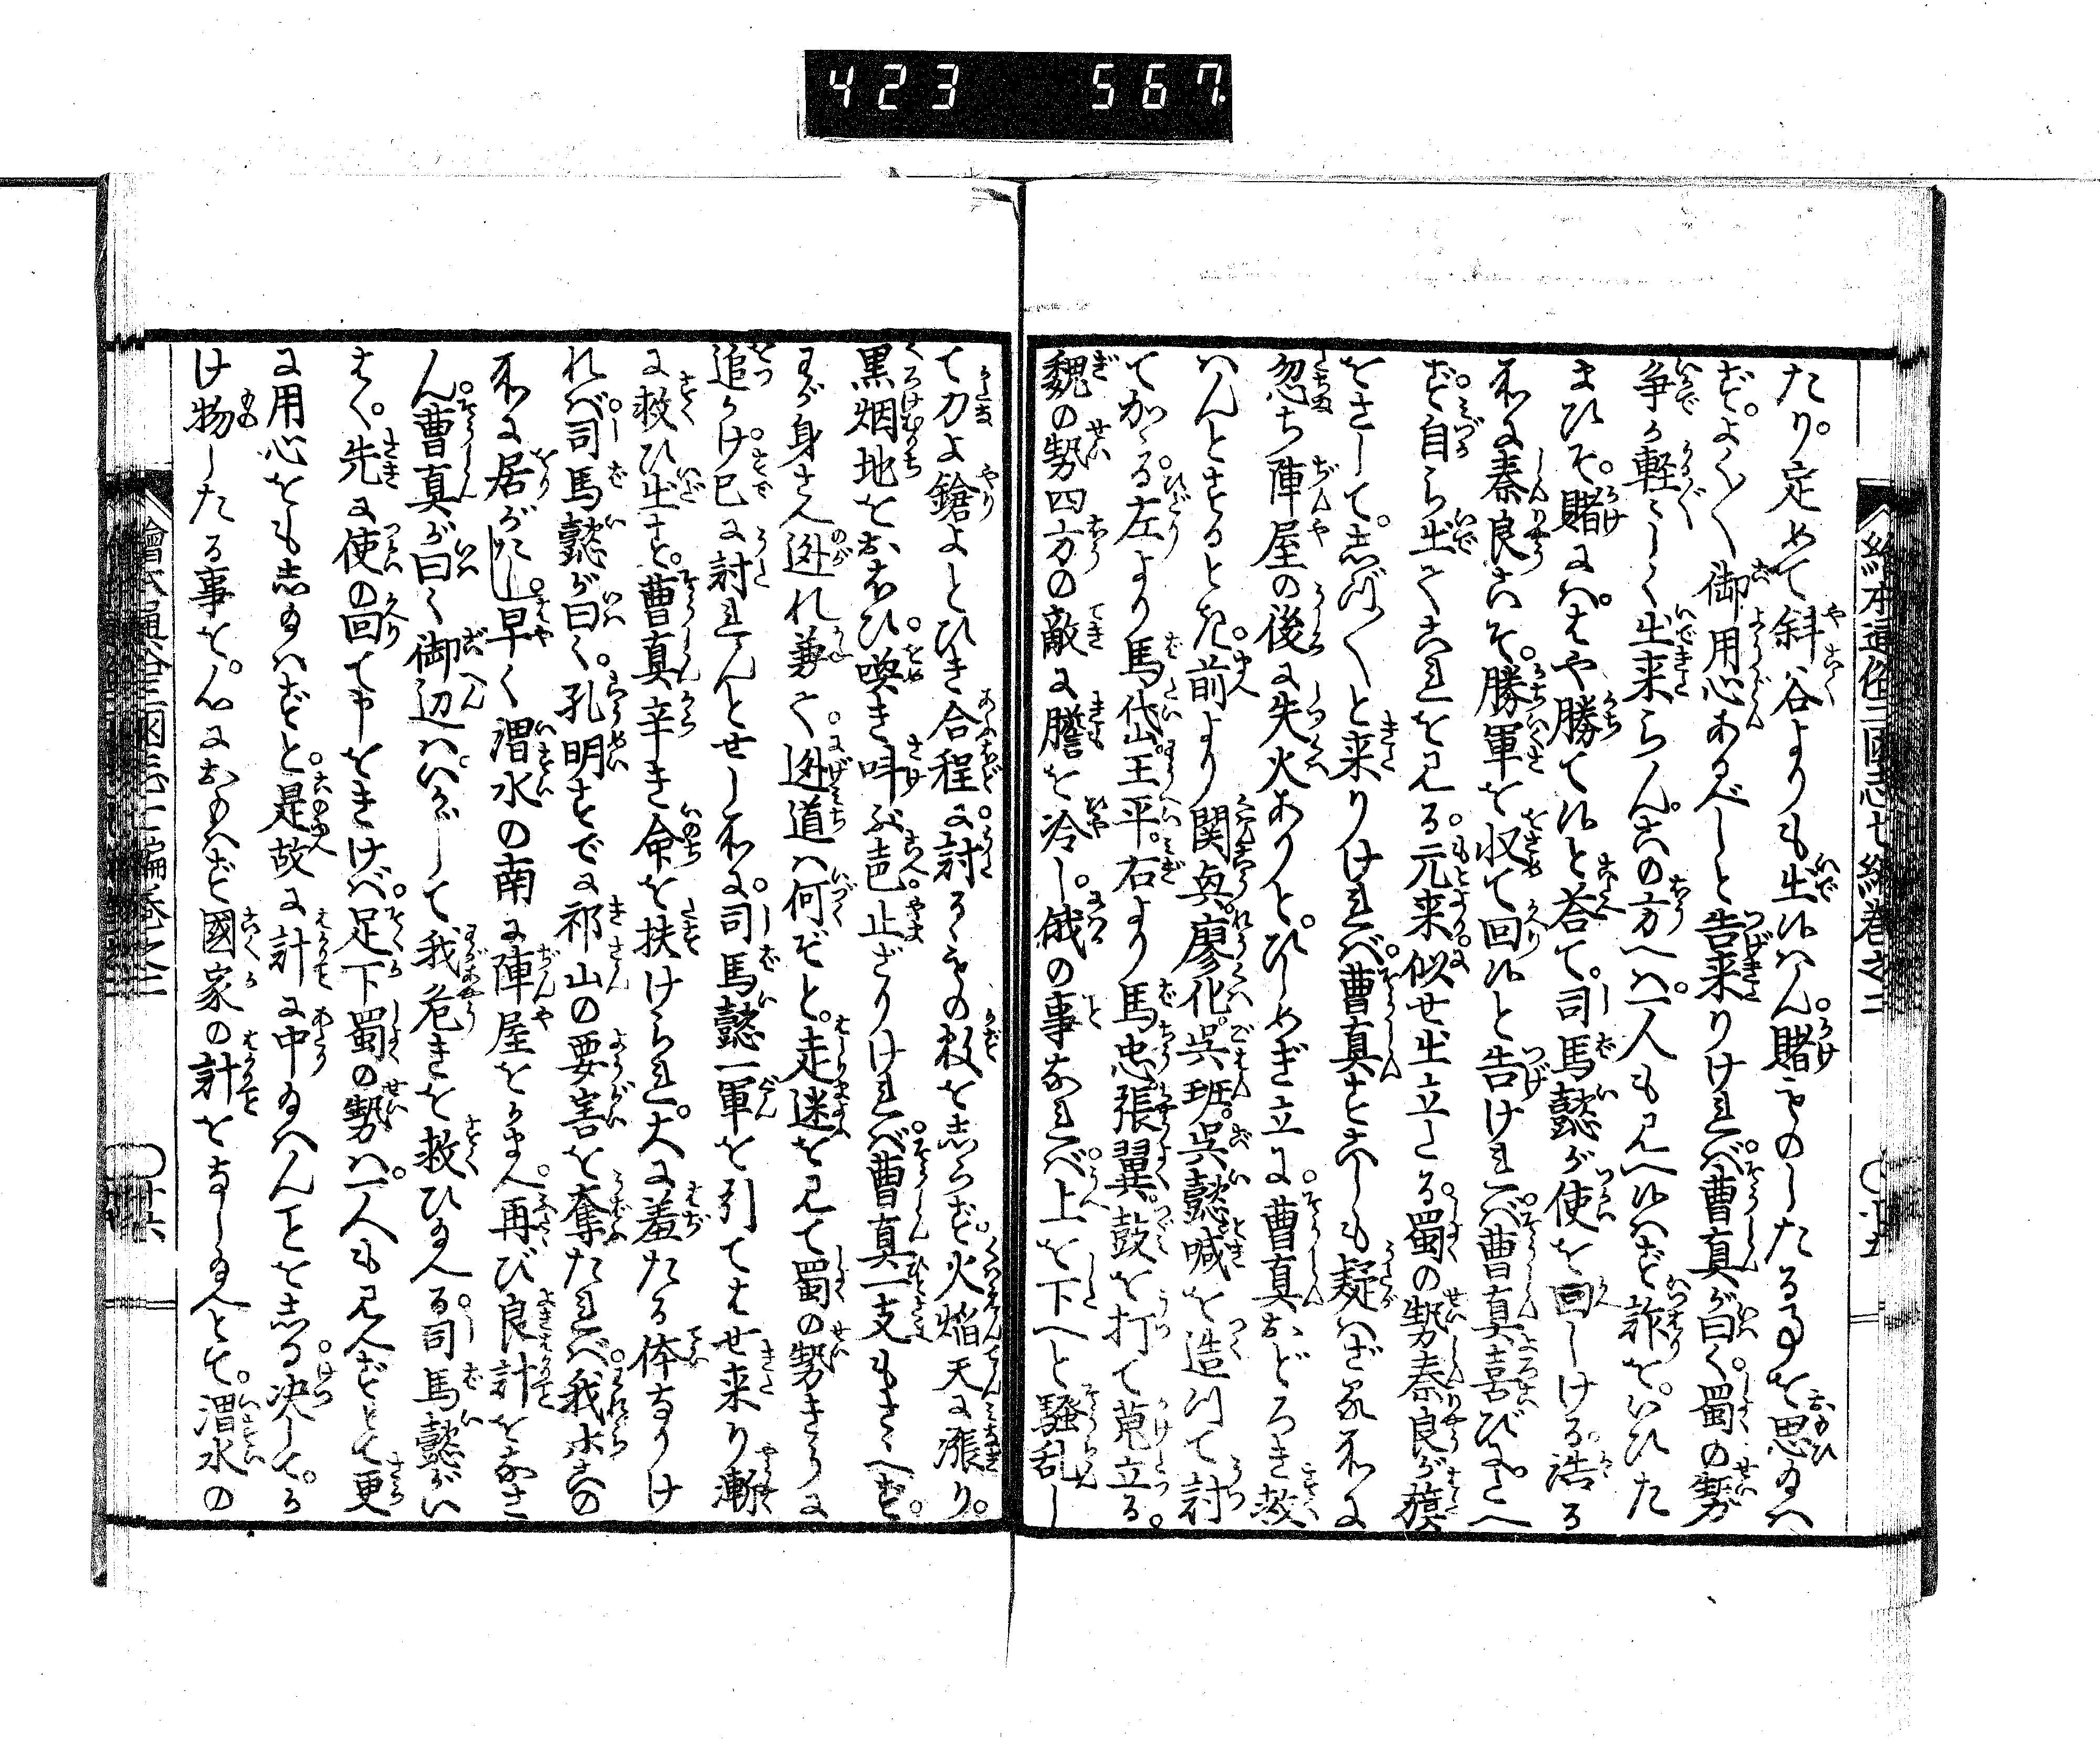 423 567
繪本通俗三國志七編巻之二
たり。定めて斜谷よりも出候はん。賭ものしたる事を思ひ給へ
ば。よく〳〵御用心あるべしと告来りければ。曹真が曰く。蜀の勢
争か軽々しく出来らん。此の方へは。一人も見へ候はず詐を。いひた
まひそ。賭には。はや勝て候と荅て。司馬懿が使を回しける。浩る
所に秦良こそ。勝軍を収て回候と告ければ。曹真喜びにたへ
ず。自ら出てこれを見る。元来似せ出立たる。蜀の勢秦良が旗
をさして。志づ〳〵と来りければ。曹真すこしも疑はざる所に
忽ち陣屋の後に失火ありと。ひしめぎ立に。曹真おどろき救
はんとするとき。前より関興。廖化。呉班。呉懿喊を造つて討
てかゝる。左より馬岱。王平。右より馬忠張翼。鼓を打て蒐立る。
魏の勢四方の敵に膽を冷し。俄の事なれば。上を下へと騒乱し
て刀よ鎗よとひき合程に。討るゝもの数を志らず。火焔天に漲り。
黒烟地をおほひ。喚き叫ぶ声。止ざりければ。曹真一支もさゝへず。
わが身さへ迯れ兼て。迯道は何ぞと。走迷を見て蜀の勢きうに
追かけ。已に討れんとせし所に。司馬懿一軍を引てはせ来り漸
に救ひ出す。曹真辛き命を扶けられ。大に羞たる体なりけ
れば。司馬懿が曰く。孔明すでに祁山の要害を奪たれば。我等此の
所に居がたし。早く渭水の南に陣屋をかまへ。再び良計をなさ
ん。曹真が曰く御辺は。いかゞして。我危きを救ひ給へる。司馬懿がい
はく。先に使の回て申をきけば。足下蜀の勢は。一人も見へずとて更
に用心をも志給はずと。是故に計に中給へんことを志る。决して。か
け物したる事を。心におもはず國家の計をなし給へとて。渭水の